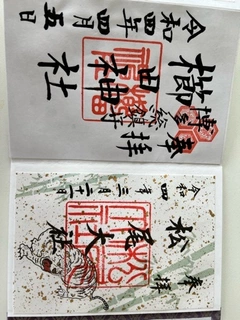 奉拝
博多総鎮守
櫛田神社
令和四年四月五日
奉拝
松尾大社
令和四年三月二十一日